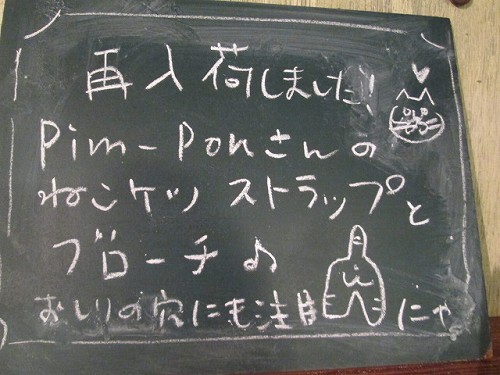 再入荷しました!
Pim-Ponさんの
ねこケツ ストラップと
ブローチ♪
おしりの穴にも注目にゃ